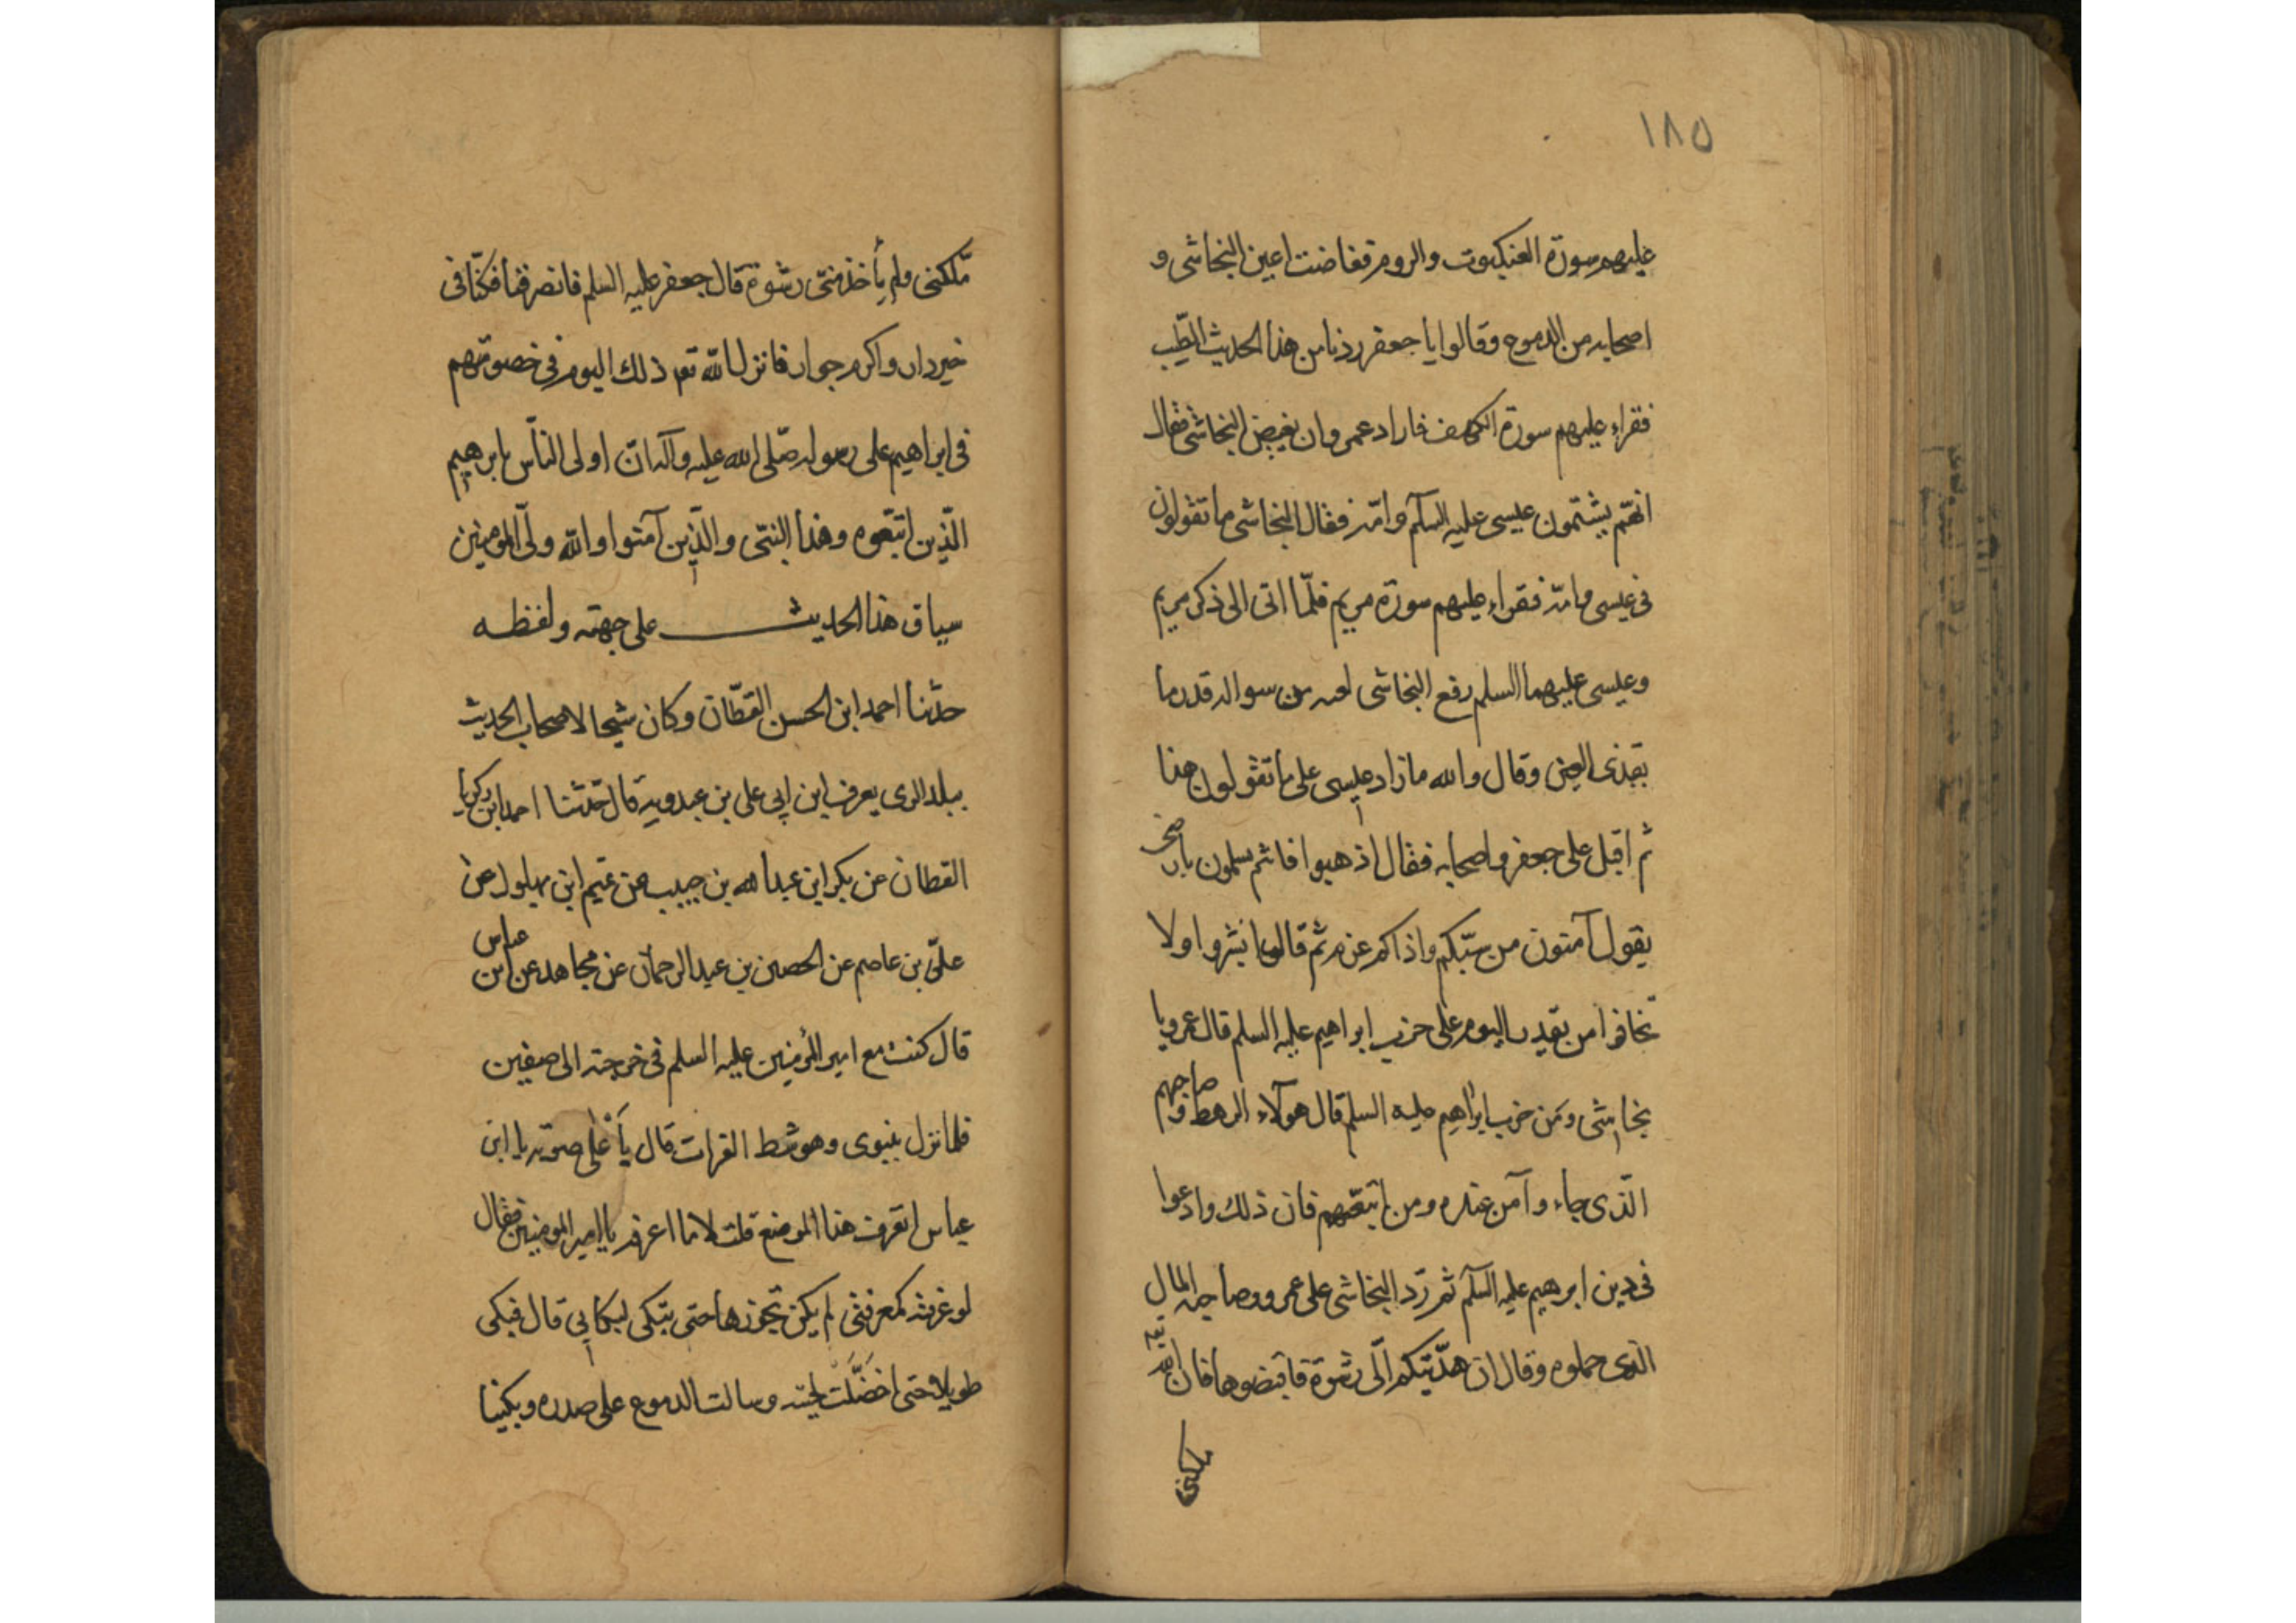 ١٨٥
عليهم سورة العنكبوت والروم ففاضت اعين النجاشى و
اصحابه من الدموع وقالوا يا جعفر زدنا من هذا الحديث الطّيب
فقراء عليهم سورة الكهف فاراد عمرو ان يغيض النجاشى فقال
انهّم يشتمون عيسى عليه السلّم وامّه فقال النجاشى ما تقولون
فى عيسى وامّه فقراء عليهم سورة مريم فلمّا اتى الى ذكر مريم
وعيسى عليهما السلم رفع النجاشى من سواكه قدر ما
يقذى العين وقال والله ما زاد عيسى على ما تقولون هذا
ثم اقبل على جعفر واصحابه فقال اذهبوا فانتم سلمون بارضى
يقول آمنون من سبّكم واذاكم غرم ثم قال ابشروا ولا
تخافوا من بعد اليوم على حزب ابراهيم عليه السلم قال عمرو يا
نجاشى ومَن حزب ابراهيم عليه السلم قال هولآء الرهط وصاحبهم
الّذى جاء وآمن عنده ومن اتبعّهم فان ذلك وادعوا
فى دين ابرهيم عليه السلّم ثم ردّ النجاشى على عمرو وصاحبه المال
الّذى حملوه وقال ان هدّيتكم الّى رشوة فاقبضوها فان الله
ملّكنى
ملّكنى ولم يأخذ منّى رشوة قال جعفر عليه السلم فانصرفنا فكنّا فى
خير دار واكرم جوار فانزل الله تع ذلك اليوم فى خصومتهم
فى ابراهيم على رسوله صلّى الله عليه وآله انّ اولى الناّس بابرهيم
الّذين اتبّعوه وهذا النبّى والذّين آمنوا والله ولّى المومنين
سياق هذا الحديث على جهته ولفظه
حدّثنا احمد ابن الحسن القطّان وكان شيخا لاصحاب الحديث
ببلد الرى يعرف بابن ابى على بن عبدويه قال حدّثنا احمد ابن زكريا
القطان عن بكر ابن عبد الله بن حبيب عن تميم ابن بهلول عن
علىّ بن عاصم عن الحصين بن عبد الرحمان عن مجاهد عن ابن عباس
قال كنت مع امير المؤمنين عليه السلم فى خرجته الى صفين
فلما نزل بنينوى وهو شط الفرات قال بأَعْلى صوته يا ابن
عباس اتعرف هذا الموضع قلت لا ما اعرفه يا امير المومنين فقال
لو عرفته كمعرفتى لم يكن تجوزها حتى تبكى لبكائى قال فبكى
طويلا حتى اخضَلَّت لحيته وسالت الدموع على صدره وبكينا